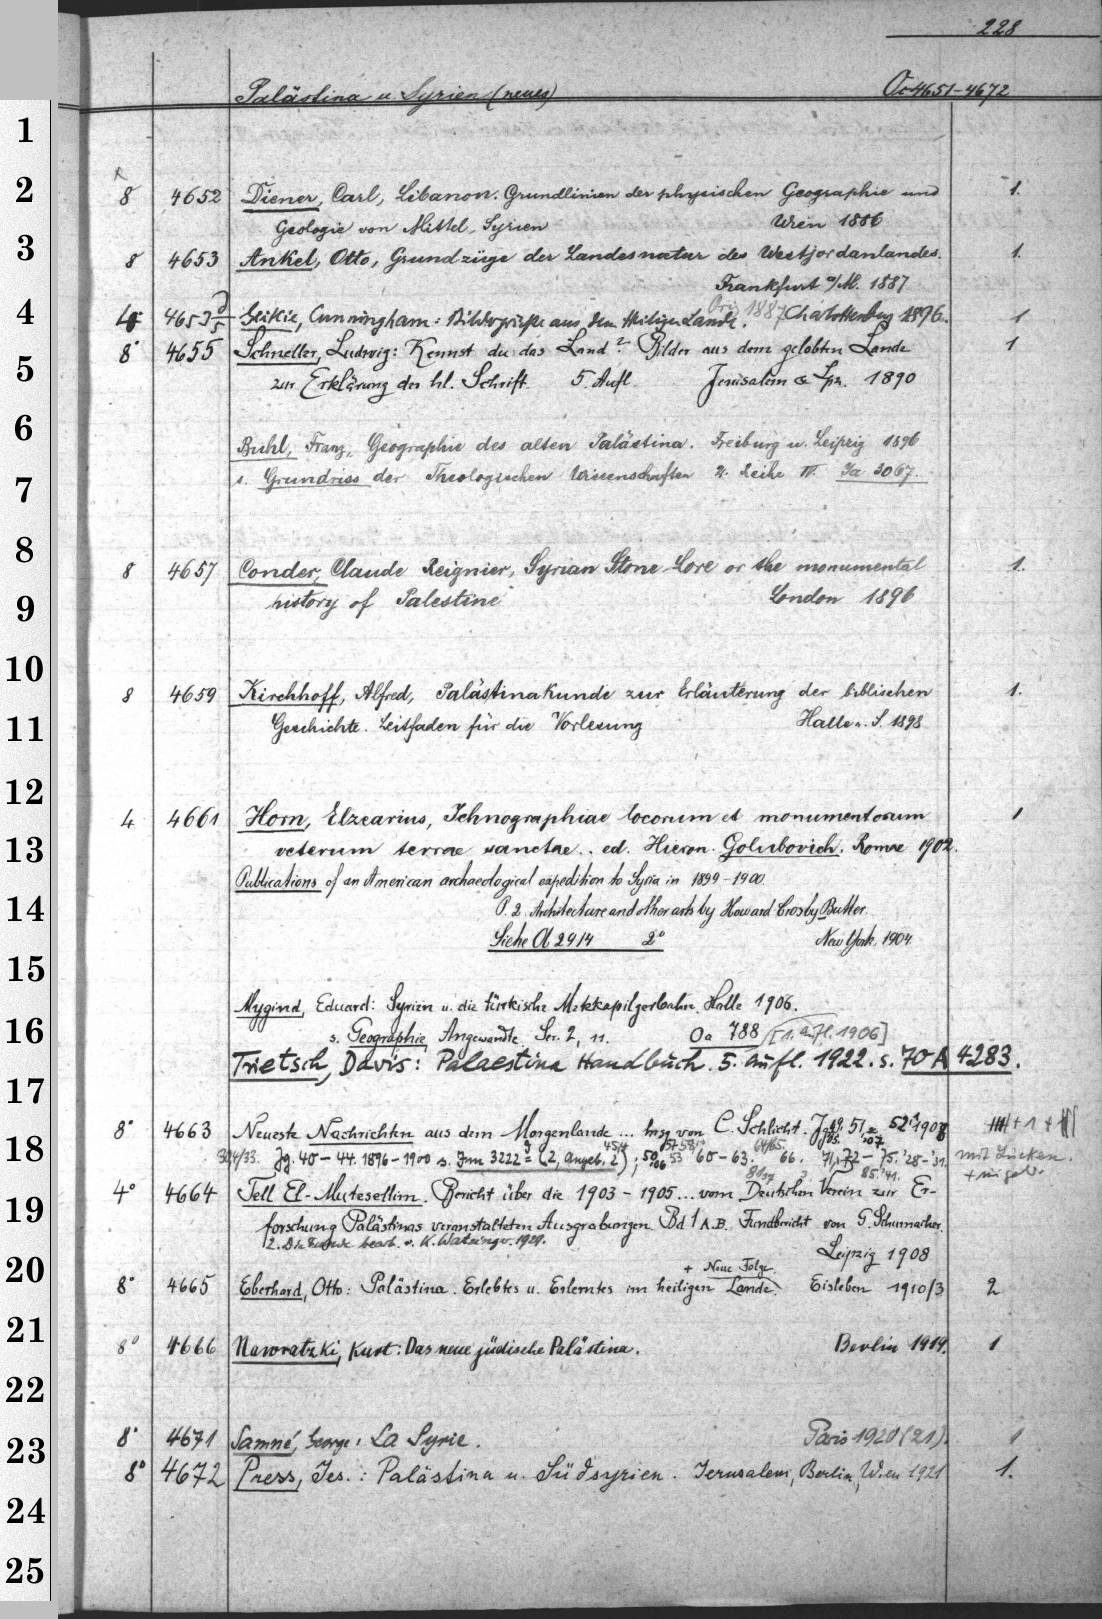 228
Palästina u. Syrien (neues) Oc 4651-4672
1
2
3
4
5
6
7
8
9
10
11
12
13
14
15
16
17
18
19
20
21
22
23
24
25
8 4652 Diener, Carl, Libanon. Grundlinien der physischen Geographie und 1.
Geologie von Mittel-Syrien Wien 1886
8 4653 Ankel, Otto, Grundzüge der Landesnatur des Westjordanlandes. 1.
Frankfurt a/M. 1887
4653 Geikie, Cunningham: Bildergrüße aus dem Heiligen Lande. Charlottenburg 1896. 1
8° 4655 Schneller, Ludwig: Kennst du das Land? Bilder aus dem gelobten Lande 1
zur Erklärung der hl. Schrift. 5. Aufl. Jerusalem & Lpz. 1890
Buhl, Franz, Geographie des alten Palästina. Freiburg u. Leipzig 1896
s. Grundriss der Theologischen Wissenschaften 2. Reihe IV. Ia 3067.
8 4657 Conder, Claude Reignier, Syrian Stone Lore or the monumental 1.
history of Palestine London 1896
8 4659 Kirchhoff, Alfred, Palästinakunde zur Erläuterung der biblischen 1.
Geschichte. Leitfaden für die Vorlesung Halle a. S. 1898
4 4661 Horn, Elzearius, Ichnographiae locorum et monumentorum 1
veterum terrae sanctae.. ed. Hieron. Golubovich. Romae 1902.
Publications of an American archaeological expedition to Syria in 1899-1900.
P. 2. Architecture and other arts by Howard Crosby Butler.
Siehe Ol 2914 2° New York. 1904.
Mygind, Eduard: Syrien u. die türkische Mekkapilgerbahn. Halle 1906.
s. Geographie, Angewandte. Ser. 2, 11. Oa 788 [1. Aufl. 1906]
Trietsch, Davis: Palaestina Handbuch. 5. Aufl. 1922. s. 70 A 4283.
8° 4663 Neueste Nachrichten aus dem Morgenlande ... hrsg von C. Schlicht. Jgg. 51 52 1908
Jg. 40-44. 1896-1900 s. Jnn 3222 (2, angeb. 2); 60-63. 66. 71, 72-75. mit Lücken.
4° 4664 Tell El-Mutesellim. Bericht über die 1903-1905... vom Deutschen Verein zur Er-
forschung Palästinas veranstalteten Ausgrabungen. Bd 1 A.B. Fundbericht von G. Schumacher.
2. Die Funde bearb. v. K. Watzinger. 1929.
Leipzig 1908
+ Neue Folge.
8° 4665 Eberhard, Otto: Palästina. Erlebtes u. Erlerntes im heiligen Lande. Eisleben 1910/3 2
8° 4666 Nawratzki, Kurt: Das neue jüdische Palästina. Berlin 1919. 1
8° 4671 Samné, George: La Syrie. Paris 1920 (21). 1
8° 4672 Press, Jes.: Palästina u. Südsyrien. Jerusalem, Berlin, Wien 1921 1.